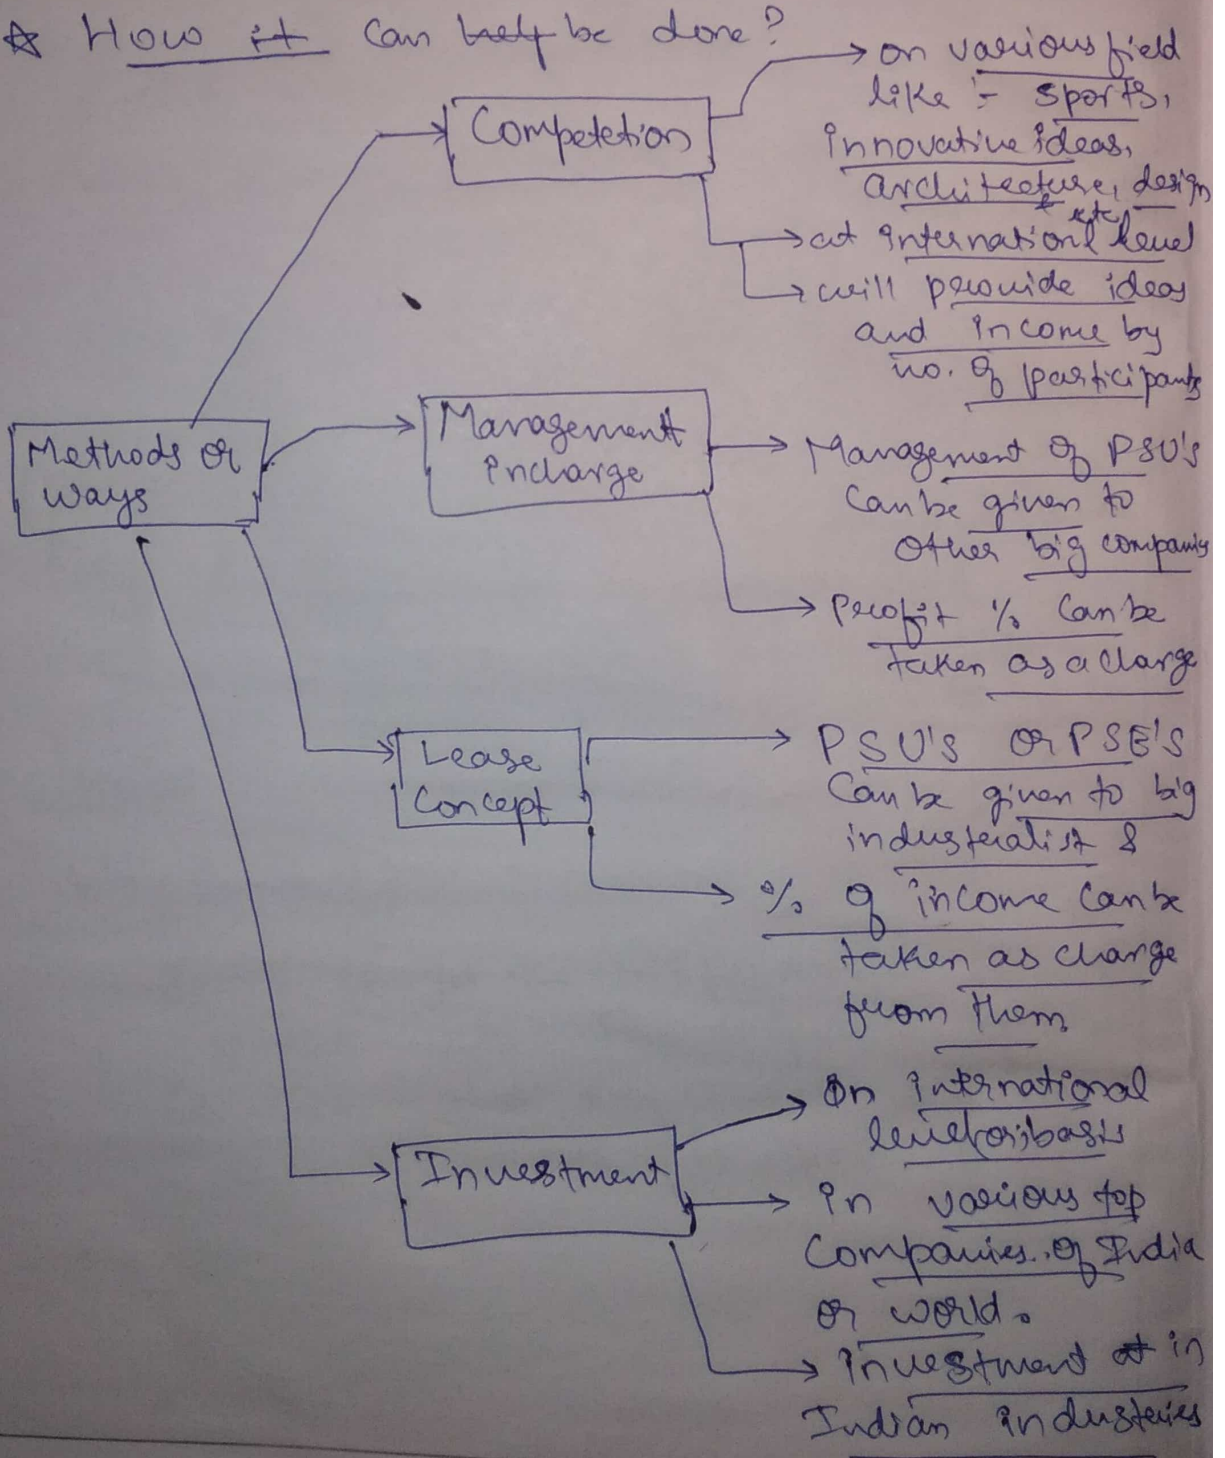 ☆ How it can help be done?
Competetion
on various field
like :- sports,
innovative ideas,
architecture, design
etc
at international level
will provide ideas
and income by
no. of participants
Methods or
ways
Management
incharge
Management of PSU's
can be given to
other big companies
Profit % can be
taken as a charge
Lease
Concept
PSU'S or PSE'S
Can be given to big
industrialist &
% of income can be
taken as charge
from them
Investment
On international
level or basis
in various top
Companies of India
or world.
investment at in
Indian industeries